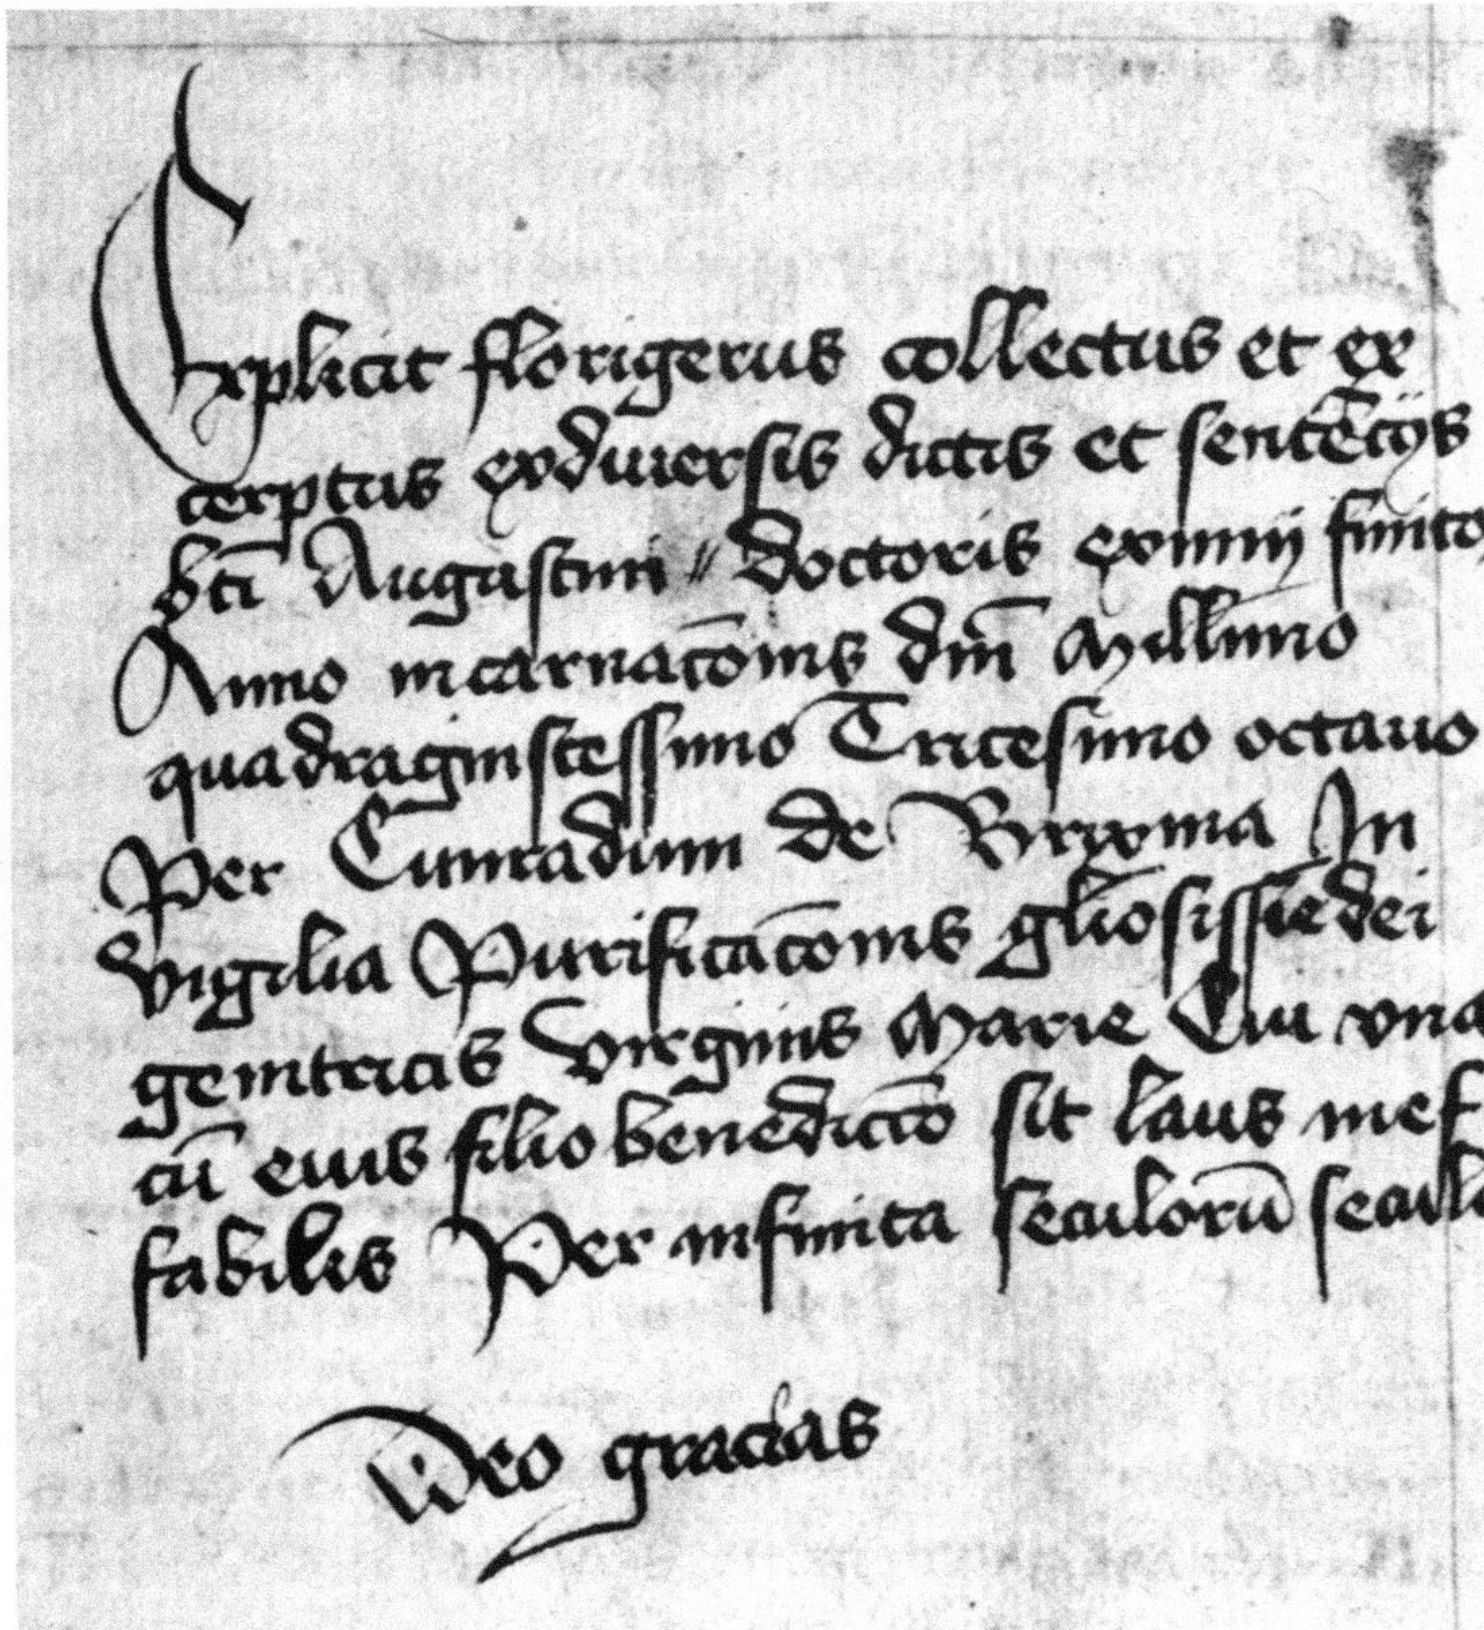 Explicit florigerus collectus et ex
cerptus ex diuersis dictis et sentēcijs
bt̄i Augustini // doctoris eximij finito
Anno incarnac̄onis dn̄i Mill̄imo
quadraginstessimo Tricesimo octauo
Per Cunradum de Brixina In
vigilia Purificac̄onis gl̄iosissīe dei
genitricis virginis Marie Cui vna
cū eius filio benedic̄to sit laus inef
fabilis Per infinita seculorū secul
Deo gracias